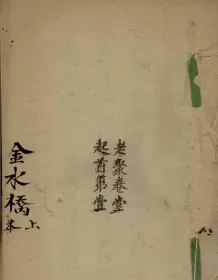 老聚卷堂
起首第堂
金水橋
上
本